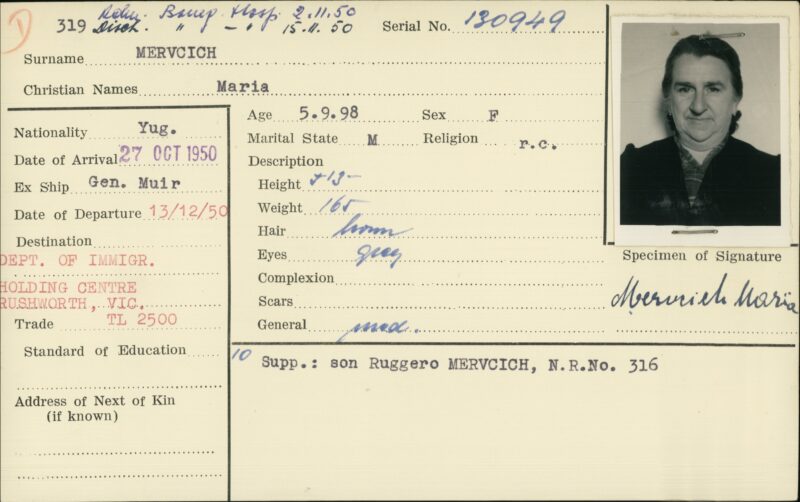 319 Adm. Bong. Hosp. 2.11.50
Disch. " - " - 15.11.50
Serial No. 130949
Surname MERVCICH
Christian Names Maria
Nationality Yug.
Date of Arrival 27 OCT 1950
Ex Ship Gen. Muir
Date of Departure 13/12/50
Destination
DEPT. OF IMMIGR.
HOLDING CENTRE
RUSHWORTH, VIC.
Trade TL 2500
Standard of Education
Address of Next of Kin
(if known)
Age 5.9.98 Sex F
Marital State M Religion r.c.
Description
Height
Weight 165
Hair brown
Eyes grey
Complexion
Scars
General med.
Specimen of Signature
Mervcich Maria
10 Supp.: son Ruggero MERVCICH, N.R.No. 316